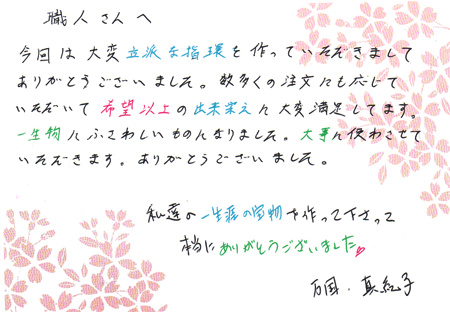 職人さんへ
今回は大変立派な指環を作っていただきまして
ありがとうございました。数多くの注文にも応じて
いただいて希望以上の出来栄えに大変満足してます。
一生物にふさわしいものになりました。大事に使わさせて
いただきます。ありがとうございました。
私達の一生涯の宝物を作って下さって
本当にありがとうございました
真紀子